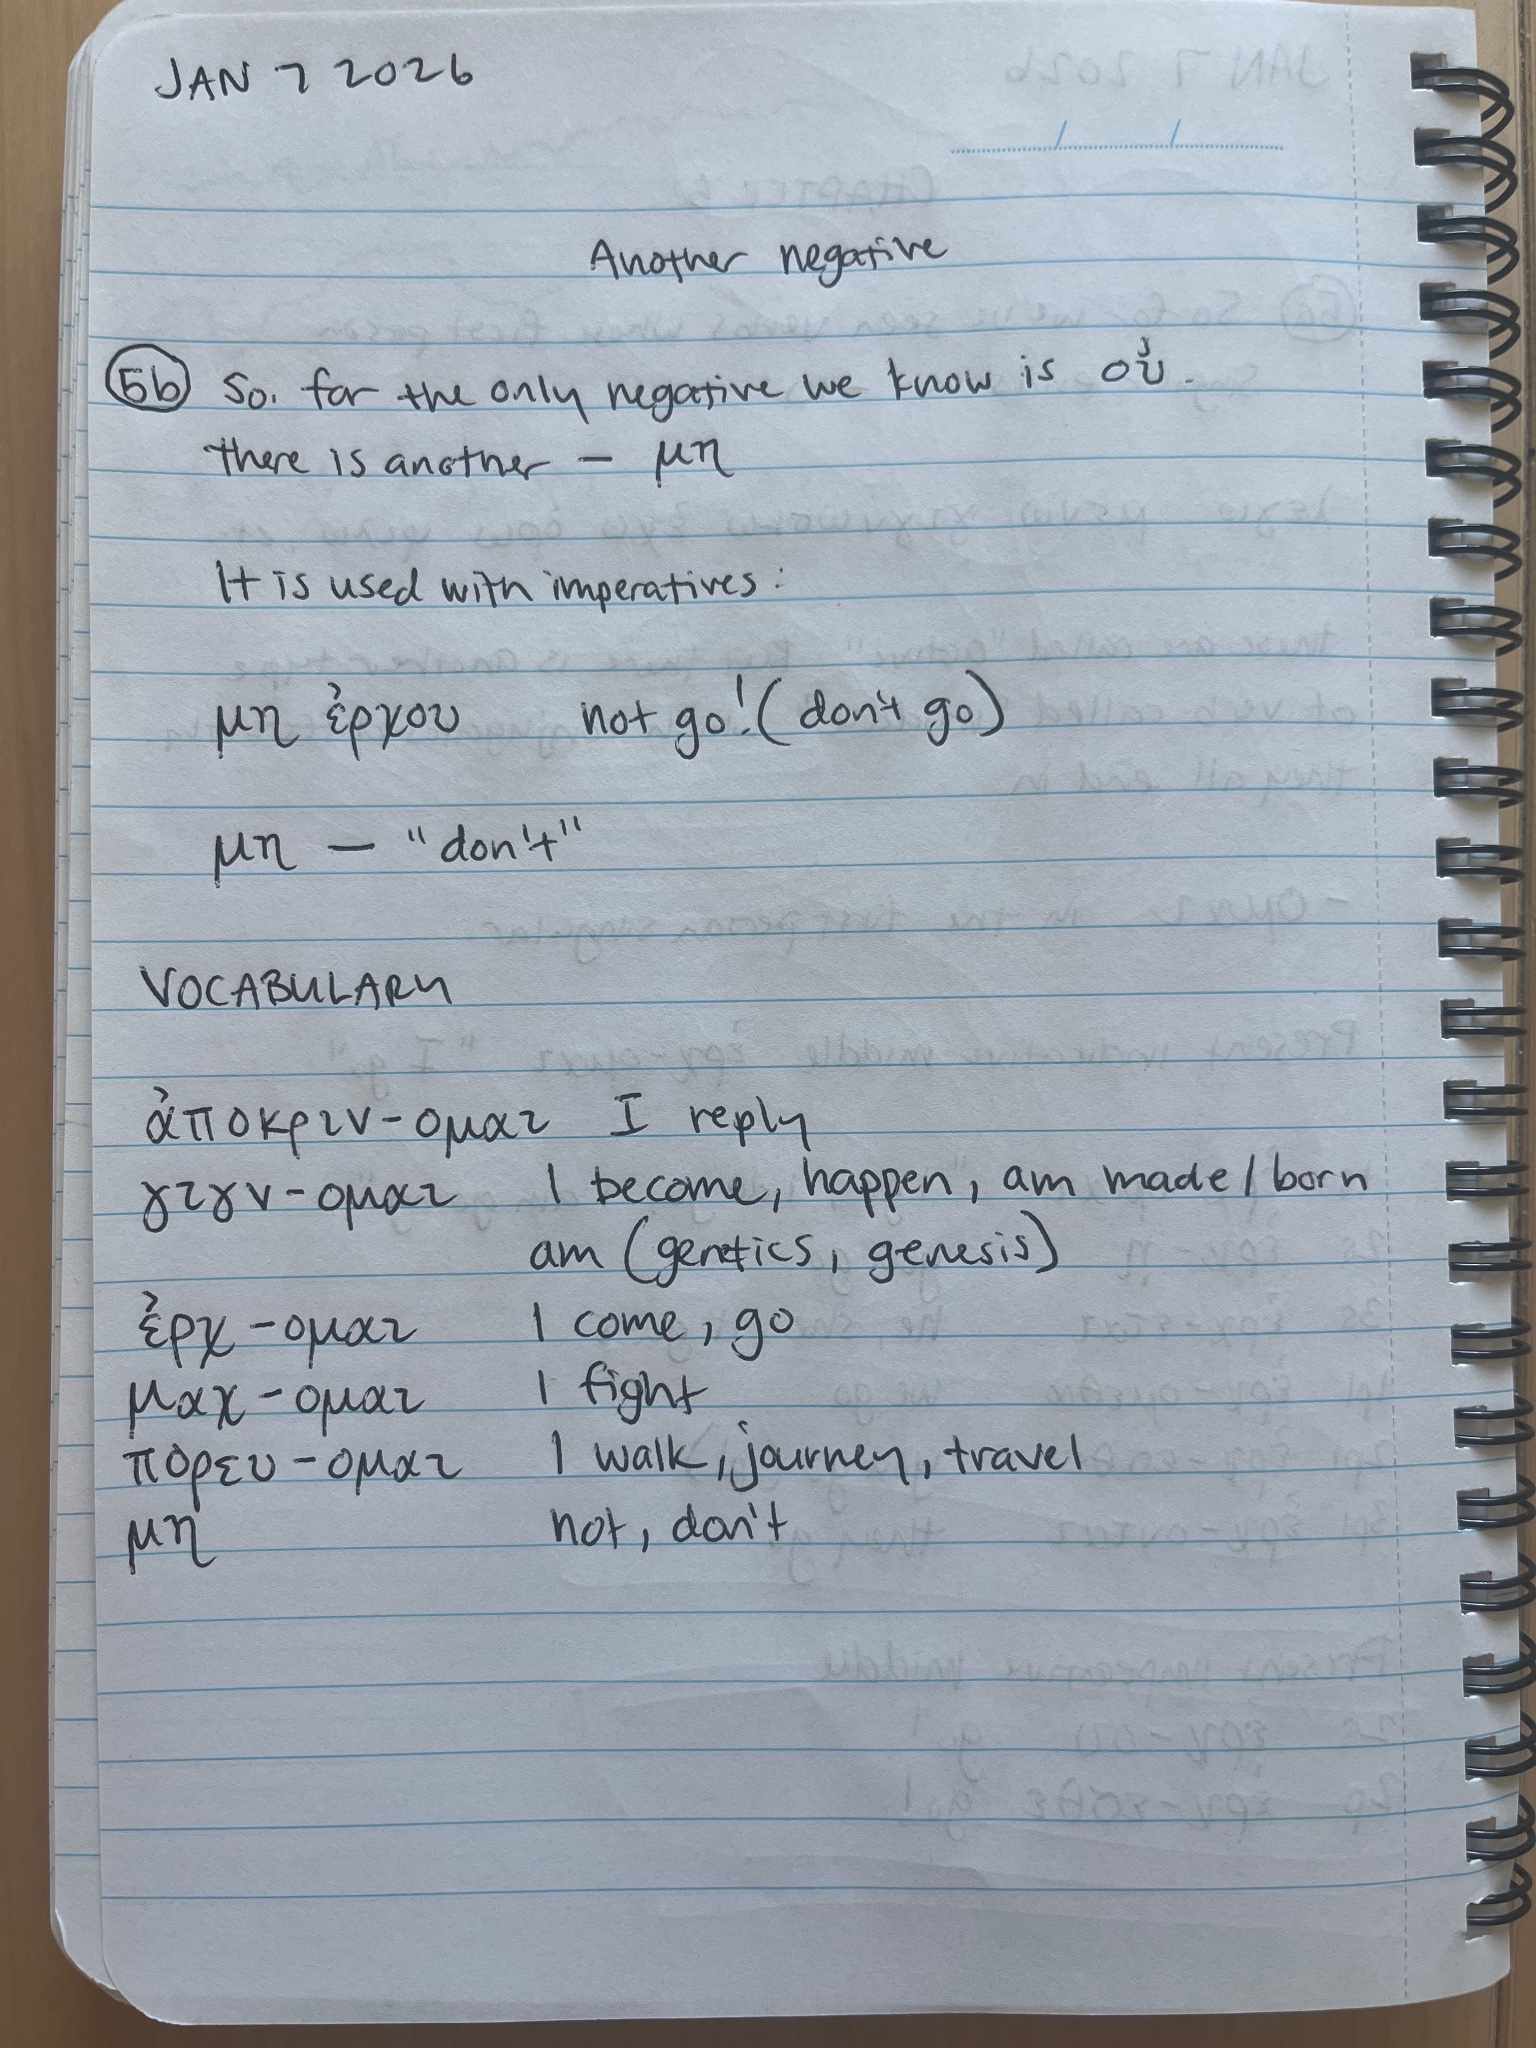 JAN 7 2026
Another negative
5b So. far the only negative we know is οὐ.
there is another – μη
It is used with imperatives:
μη ἐρχου not go! (don't go)
μη – "don't"
VOCABULARY
ἀποκριν-ομαι I reply
γιγν-ομαι I become, happen, am made/born
am (genetics, genesis)
ἐρχ-ομαι I come, go
μαχ-ομαι I fight
πορευ-ομαι I walk, journey, travel
μη not, don't